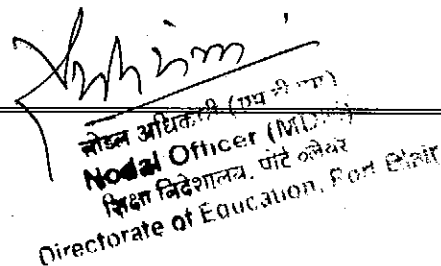 नोडल अधिकारी
Nodal Officer
शिक्षा निदेशालय, पोर्ट ब्लेयर
Directorate of Education, Port Blair